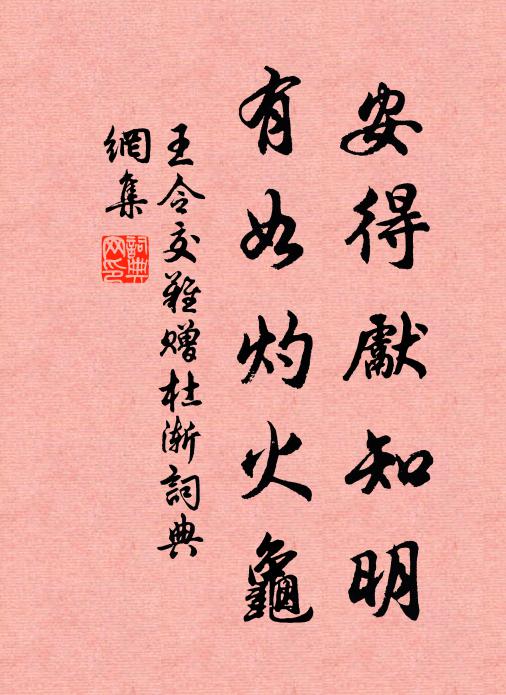 安得獻知明
有如灼火龜
王令交難贈杜漸詞典
網集
詞典
网印